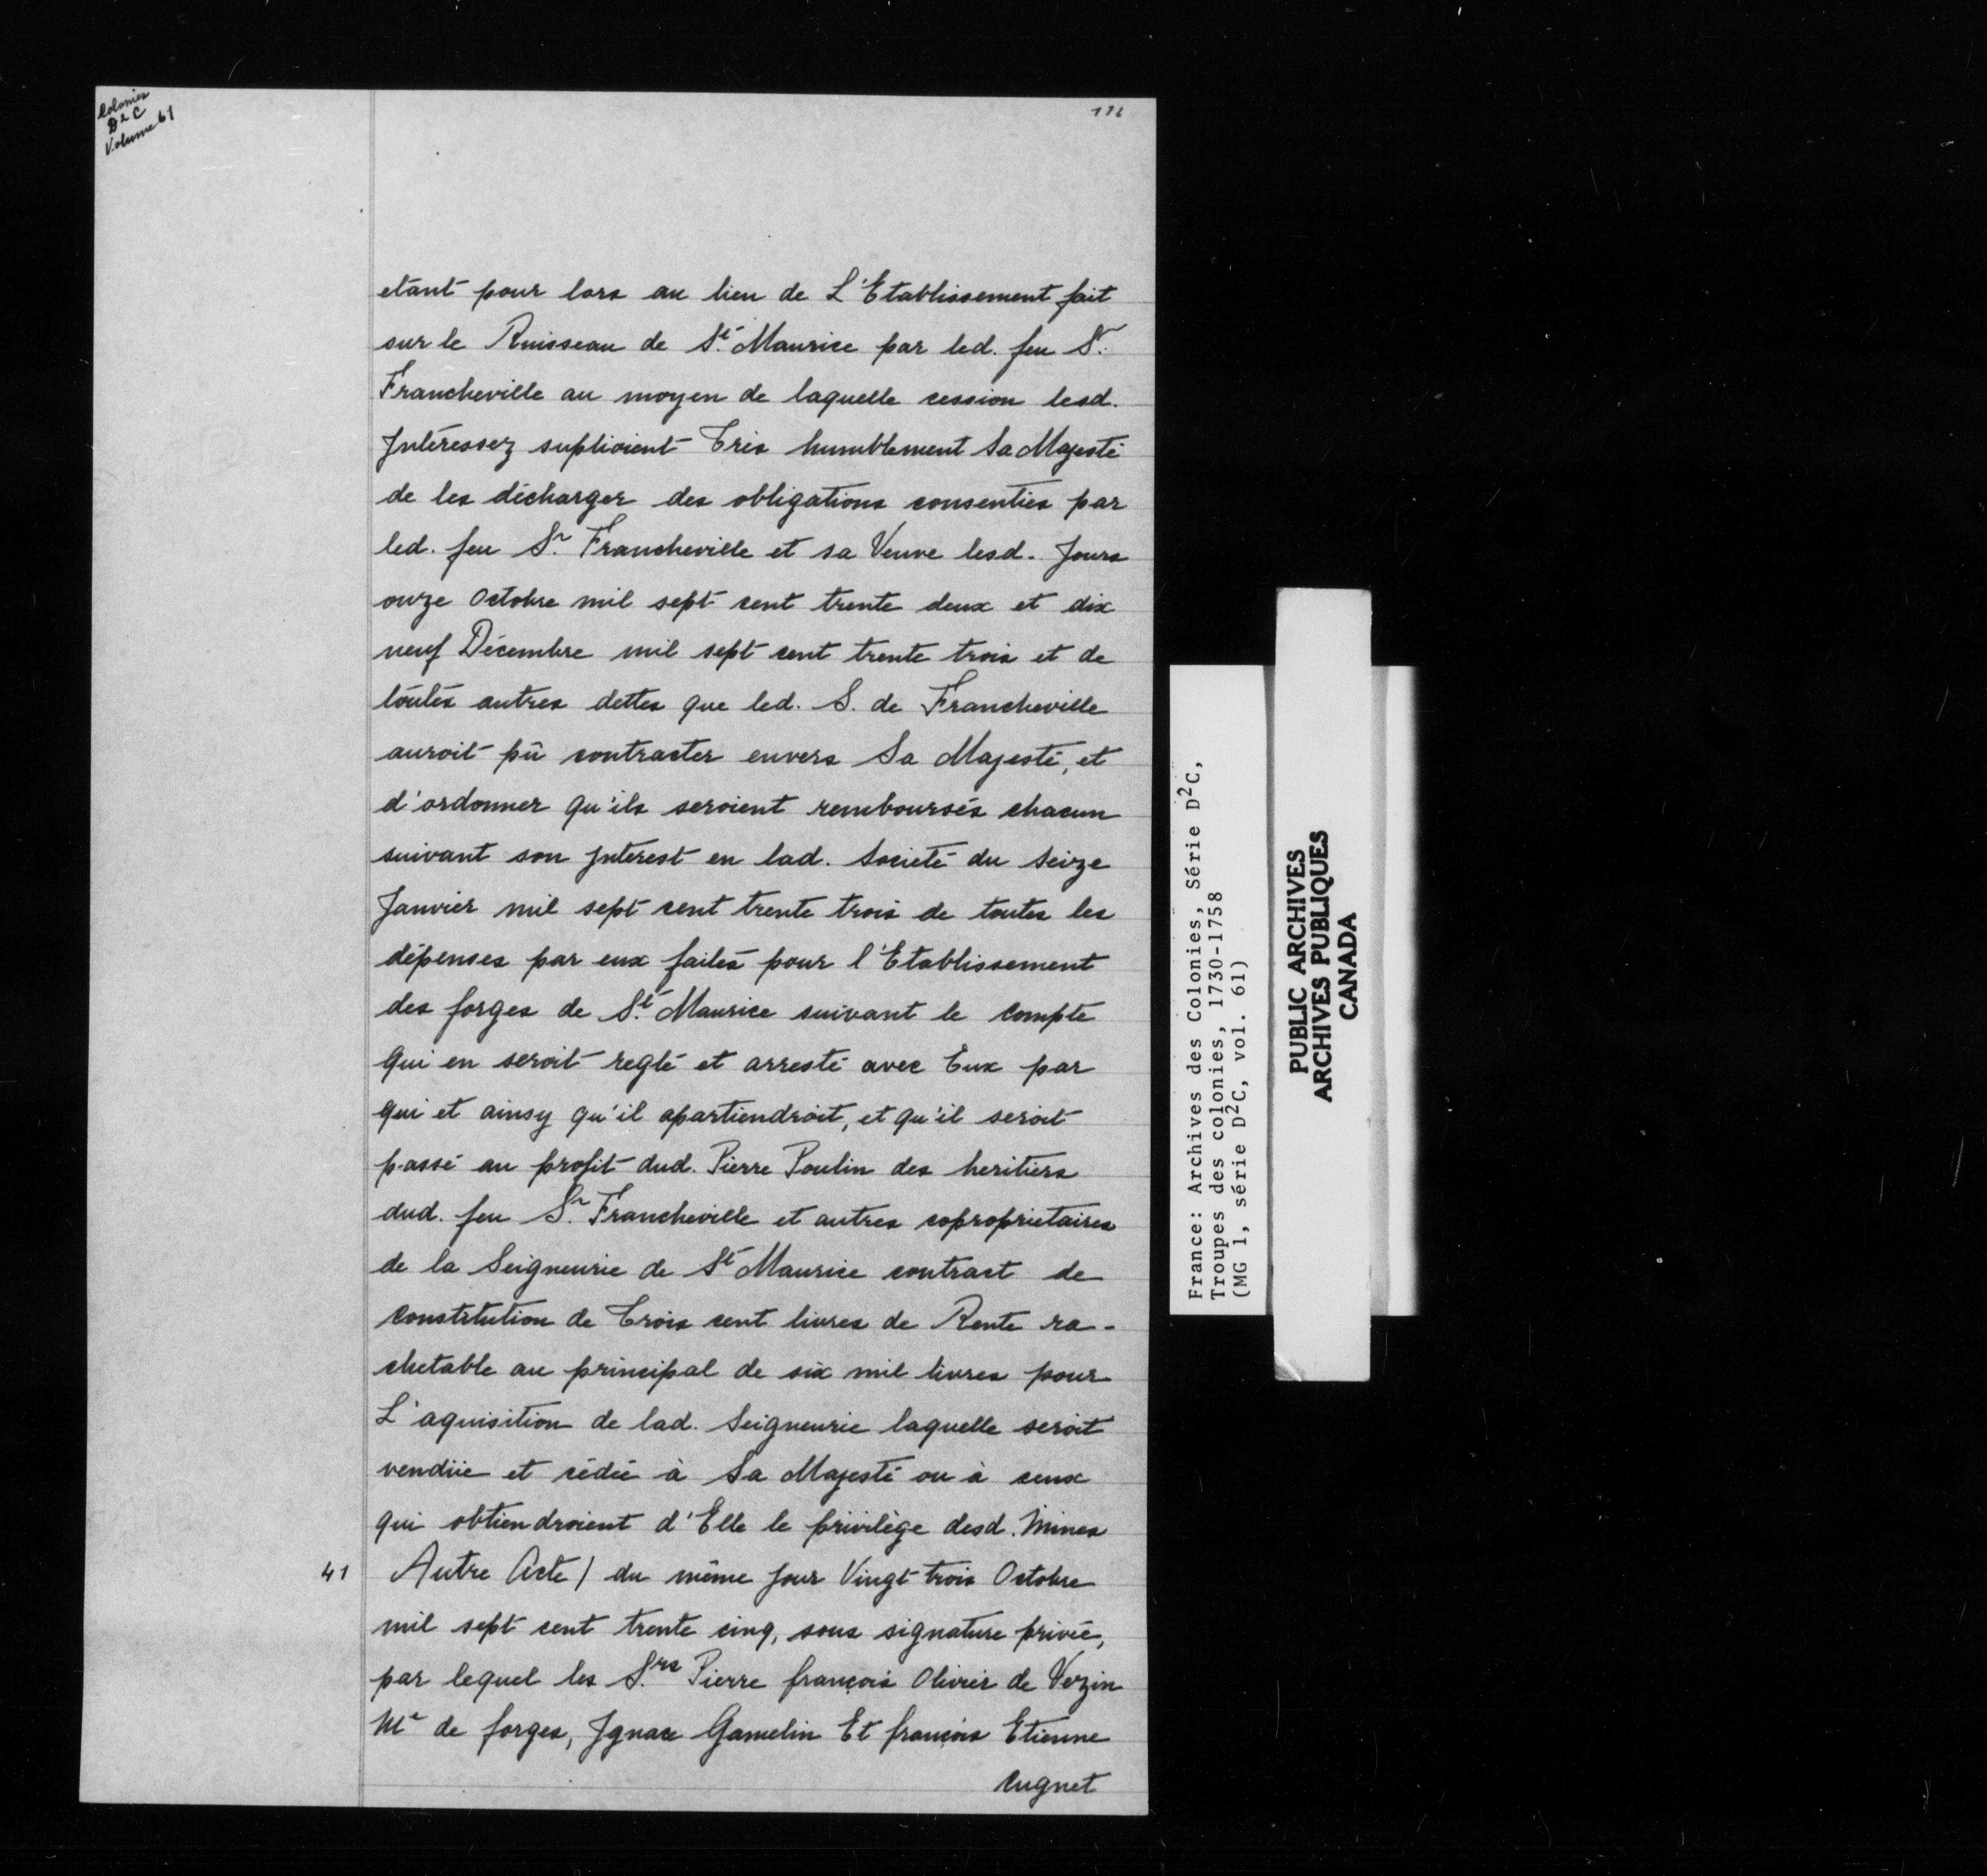 Colonies
D2C
Volume 61
etant pour lors au lieu de L'Etablissement fait
sur le Ruisseau de St. Maurice par led. feu Sr.
Francheville au moyen de laquelle cession lesd.
Intéressez suplioient Très humblement Sa Majesté
de les décharger des obligations consenties par
led. feu Sr. Francheville et sa Veuve lesd. Jours
onze Octobre mil sept cent trente deux et dix
neuf Décembre mil sept cent trente trois et de
toutes autres dettes que led. S. de Francheville
auroit pû contracter envers Sa Majesté, et
d'ordonner qu'ils seroient remboursés chacun
suivant son Interest en lad. Societé du Seize
Janvier mil sept cent trente trois de toutes les
dépenses par eux faites pour l'Etablissement
des forges de St. Maurice suivant le Compte
qui en seroit reglé et arresté avec Eux par
qui et ainsy qu'il apartiendroit, et qu'il seroit
passé au profit dud. Pierre Poulin des heritiers
dud. feu Sr. Francheville et autres coproprietaires
de la Seigneurie de St Maurice contract de
Constitution de Trois cent livres de Rente ra-
chetable au principal de six mil livres pour
L'aquisition de lad. Seigneurie laquelle seroit
vendüe et cédée à Sa Majesté ou à ceux
qui obtiendroient d'Elle le privilège desd. Mines
41 Autre Acte / du même Jour Vingt trois Octobre
mil sept cent trente cinq, sous signature privée,
par lequel les S.rs Pierre françois Olivier de Vezin
Me de forges, Ignace Gamelin Et françois Etienne
Cugnet
France: Archives des Colonies, Série D2C,
Troupes des colonies, 1730-1758
(MG 1, série D2C, vol. 61)
PUBLIC ARCHIVES
ARCHIVES PUBLIQUES
CANADA